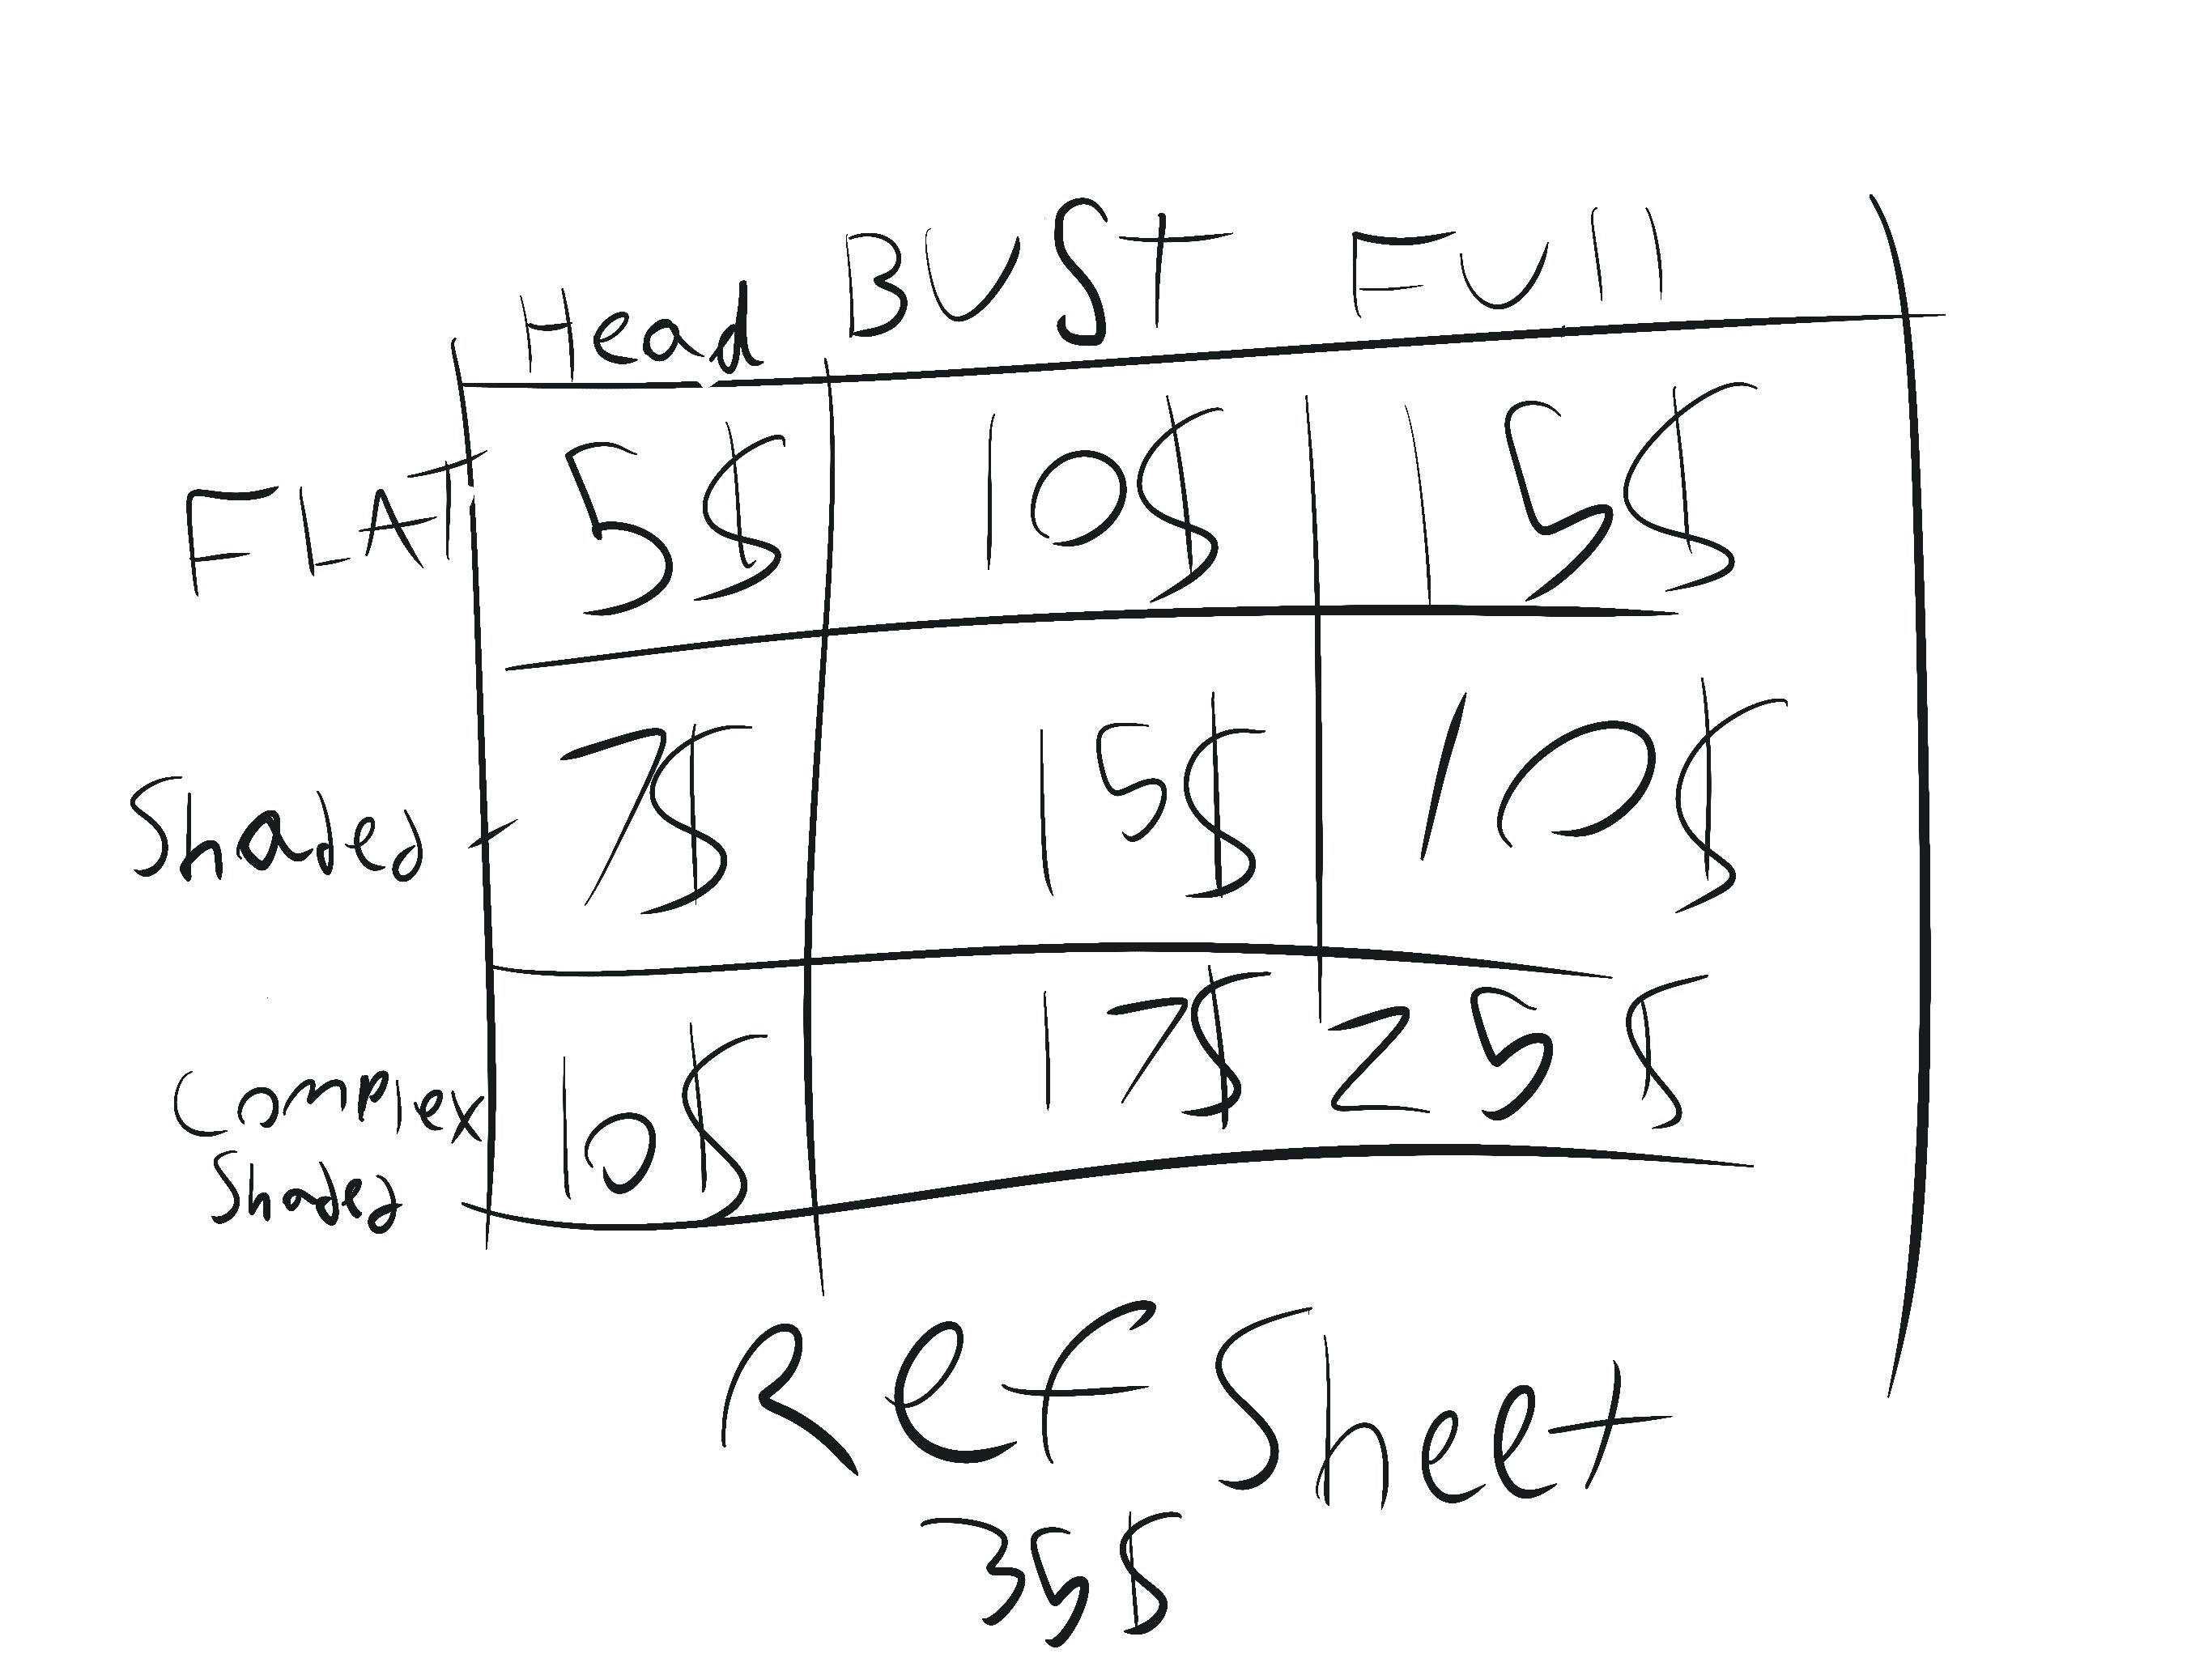 Head BUST FUll
FLAT 5$ 10$ 15$
Shaded 7$ 15$ 10$
Complex 10$ 17$ 25$
Shaded
Ref Sheet
35$